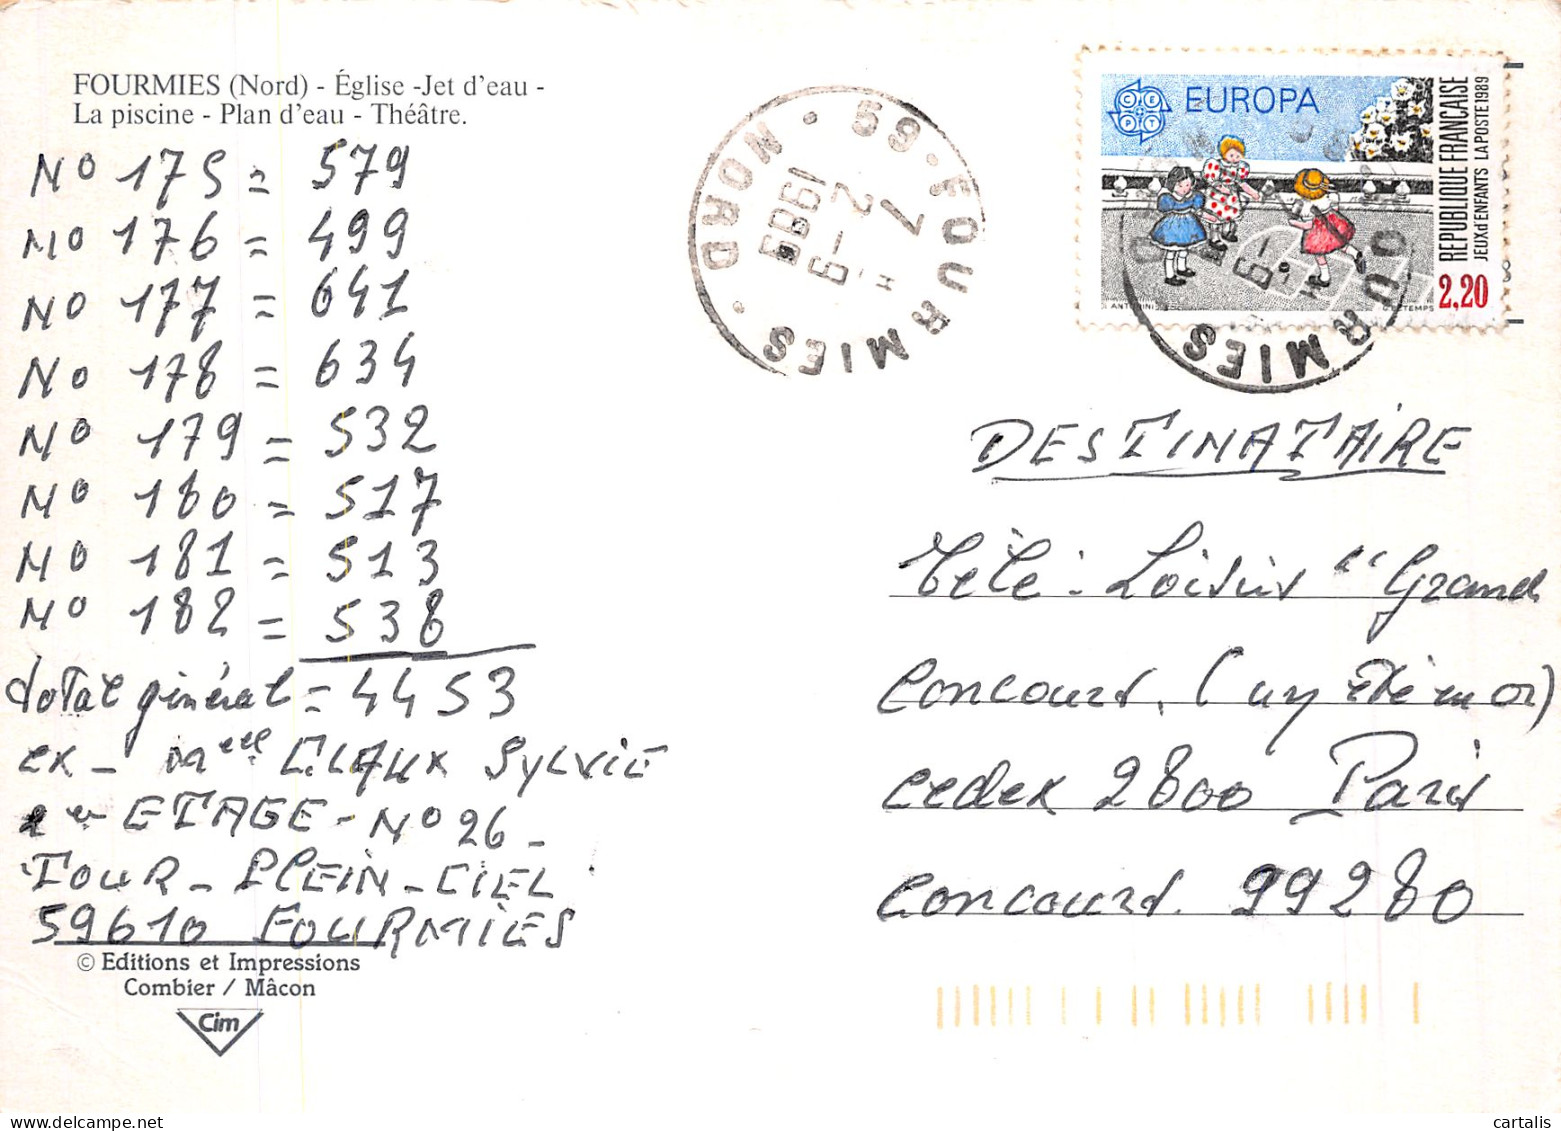 FOURMIES (Nord) - Église -Jet d'eau -
La piscine - Plan d'eau - Théâtre.
No 175 = 579
No 176 = 499
No 177 = 641
No 178 = 634
No 179 = 532
No 180 = 517
No 181 = 513
No 182 = 538
total général = 4453
ex - Melle CLAUX SYLVIE
ETAGE - No 26 -
TOUR - PLEIN - CIEL
59610 FOURMIES
© Editions et Impressions
Combier / Mâcon
Cim
59 FOURMIES
NORD
7 H
2 - 9
1989
CEPT
EUROPA
REPUBLIQUE FRANÇAISE
JEUX d'ENFANTS LA POSTE 1989
2,20
FOURMIES
DESTINATAIRE
Télé - Loisirs " Grand
Concours. (un été en or)
cedex 2800 Paris
concours. 99280
cartalis